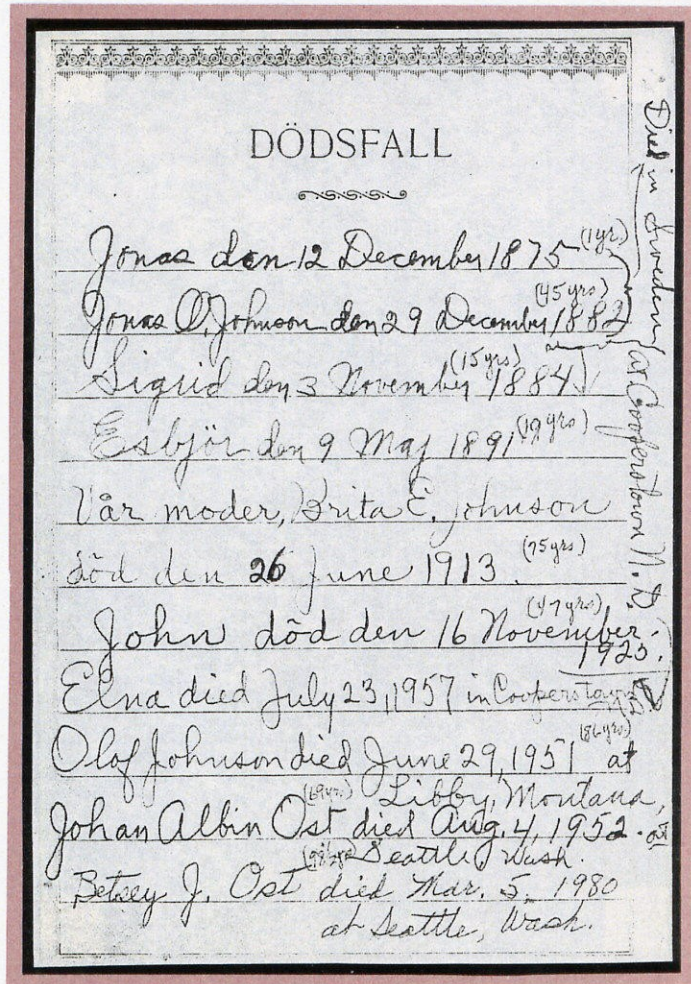 DÖDSFALL
Jonas den 12 December 1875 (1yr)
Jonas O. Johnson den 29 December 1882 (45 yrs)
Sigrid den 3 November 1884 (15 yrs)
Esbjör den 9 Maj 1891 (19 yrs)
Vår moder, Brita E. Johnson
död den 26 June 1913. (75 yrs)
John död den 16 November. (47 yrs)
1925.
Elna died July 23, 1957 in Cooperstown
Olof Johnson died June 29, 1951 at (86 yrs)
Libby, Montana,
Johan Albin Ost died Aug. 4, 1952. at (69 yrs)
Seattle, Wash.
Betsey J. Ost died Mar. 5, 1980
at Seattle, Wash.
Died in Sweden
at Cooperstown N. D.